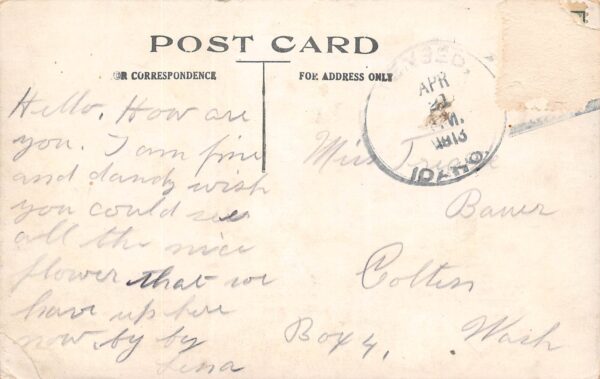 POST CARD
OR CORRESPONDENCE
FOR ADDRESS ONLY
APR
21
M.
1913
IDAHO.
Hello. How are
you. I am fine
and dandy wish
you could see
all the nice
flower that we
have up here
now. by by
Lena
Miss
Bauer
Colton
Box 4, Wash